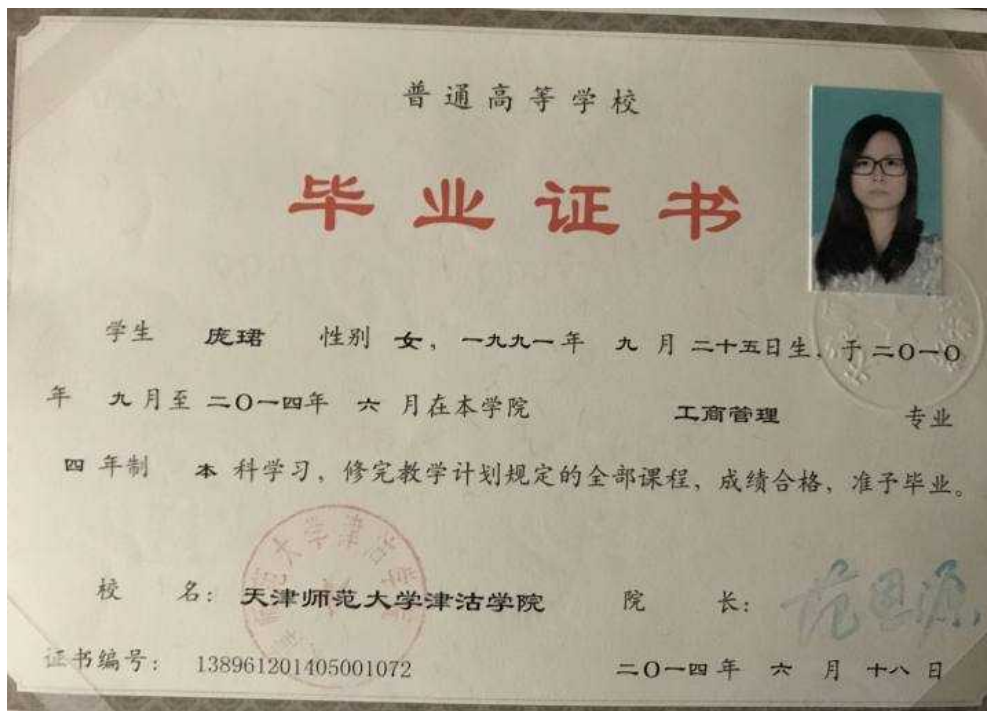 普通高等学校
毕业证书
学生 庞珺 性别 女，一九九一年 九 月 二十五日生，于二〇一〇
年 九月至 二〇一四年 六 月在本学院 工商管理 专业
四 年制 本 科学习，修完教学计划规定的全部课程，成绩合格，准予毕业。
校 名：天津师范大学津沽学院 院 长：范恩源
证书编号： 138961201405001072 二〇一四年 六 月 十八 日